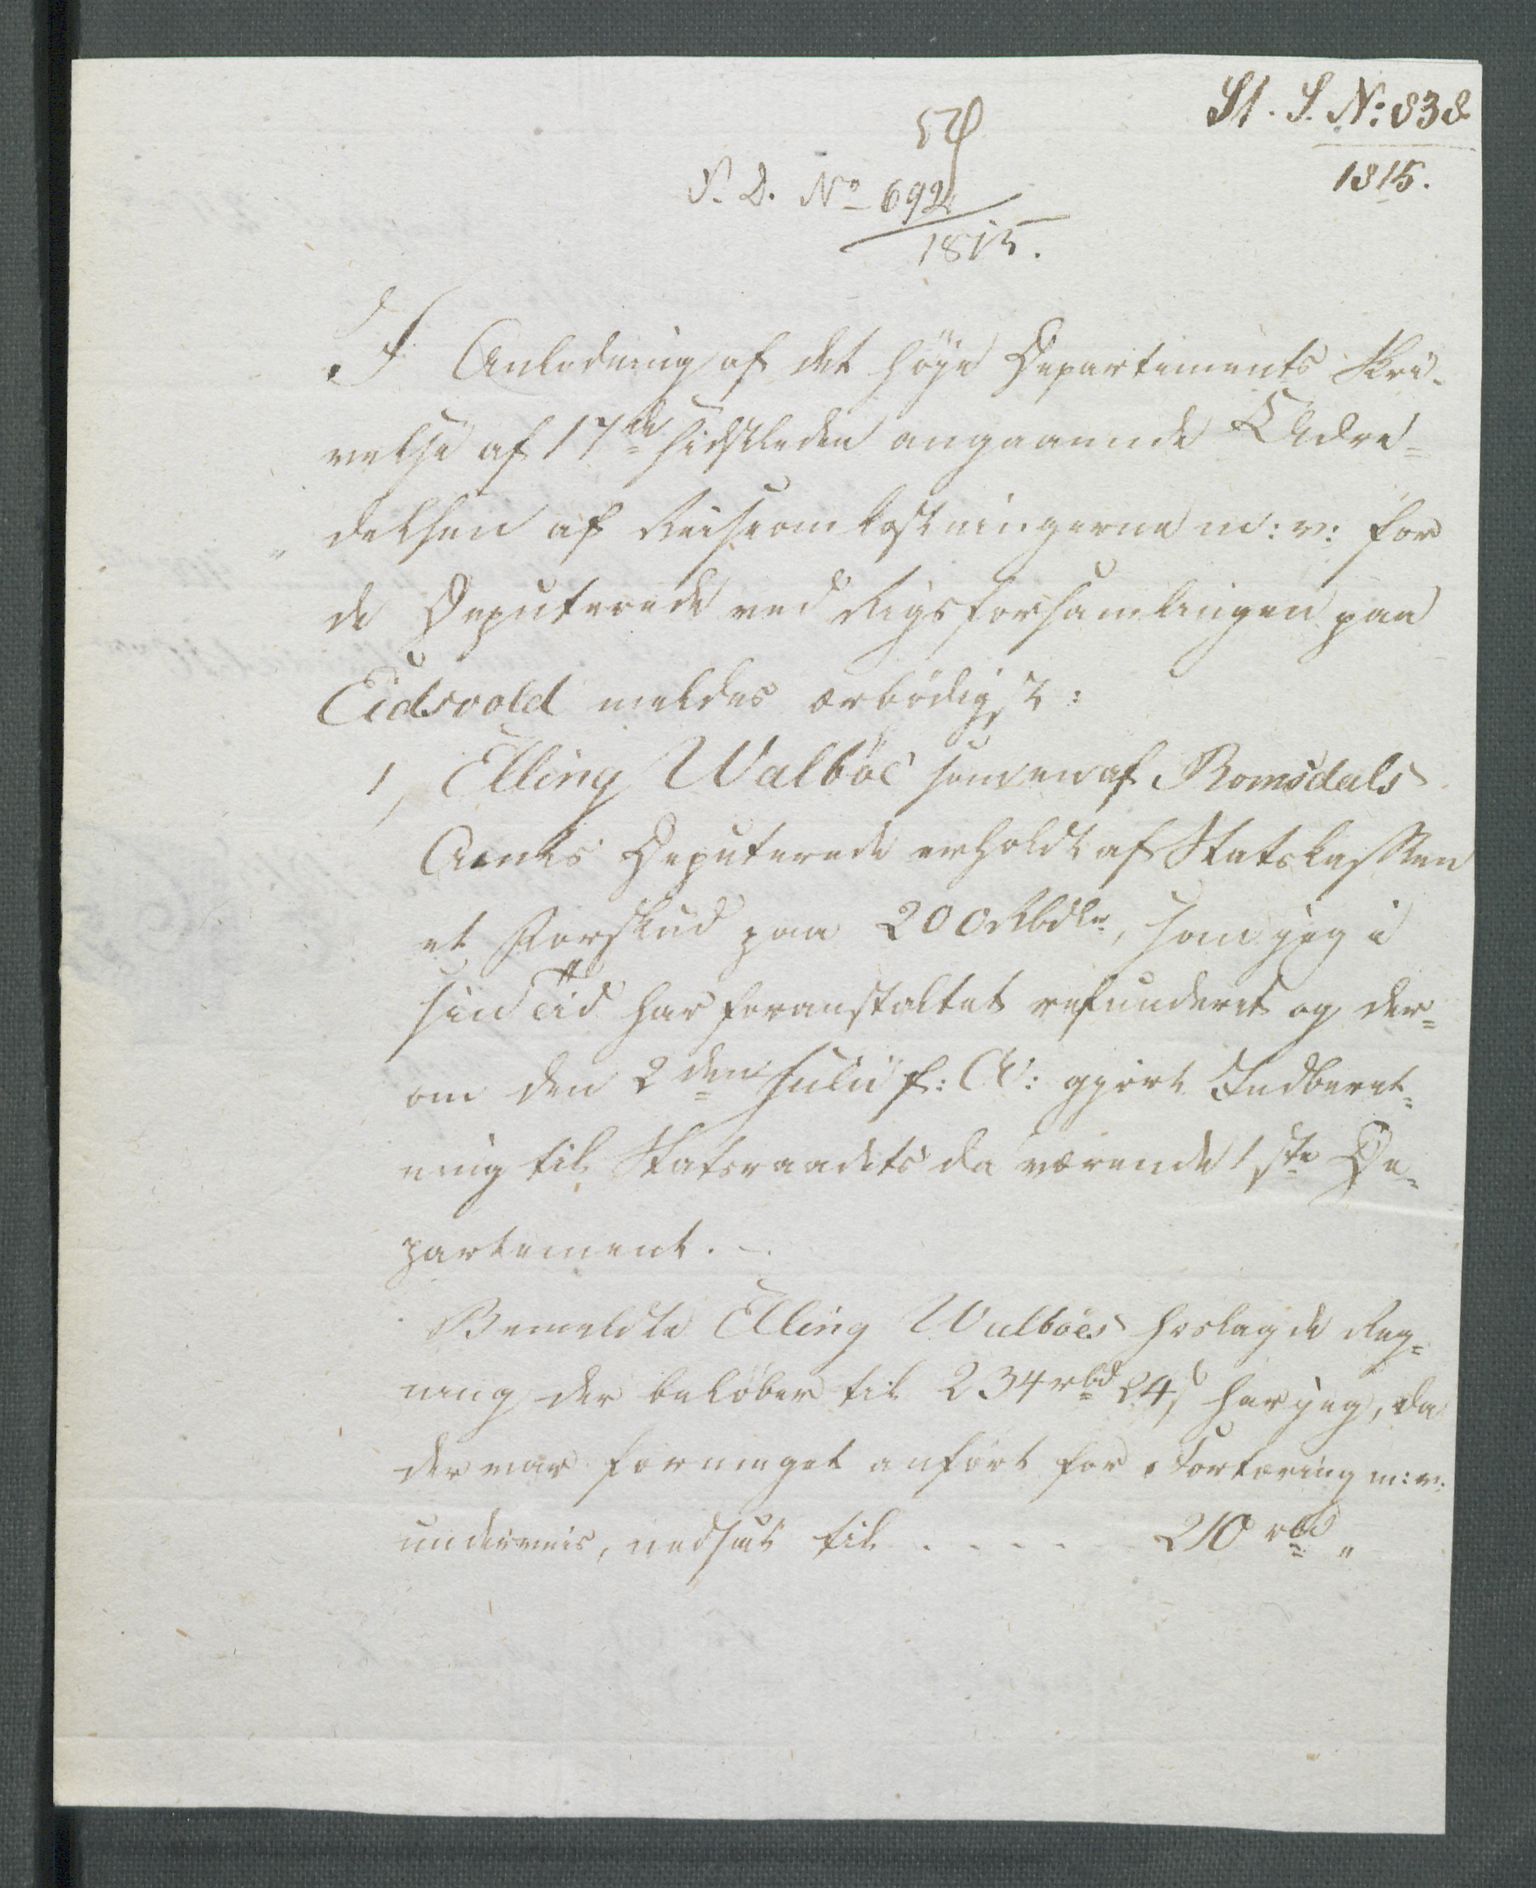 St. S. No: 838
1815.
S. D. No 692
1815.
I Anledning af det høye Departements Skri-
velse af 17de sidstleden angaaende Udre=
delsen af Reiseomkostningerne m: v: for
de Deputerede ved Rigsforsamlingen paa
Eidsvold meldes ærbødigst:
1, Elling Walbøe som en af Romsdals
Amts Deputerede erholdt af Statskassen
et Forskud paa 200 Rbdlr, som jeg i
sin Tiid har foranstaltet refunderet og der=
om den 2den Julii f: A: gjort Indberet=
ning til Statsraadets da værende 1ste De=
partement. -
Bemeldte Elling Walbøes forlagde Reg=
ning der beløber til 234 rbd 24 s har jeg, da
der var formeget anført for Fortæring m: v:
underveis, nedsat til . . . . 210 rbd "